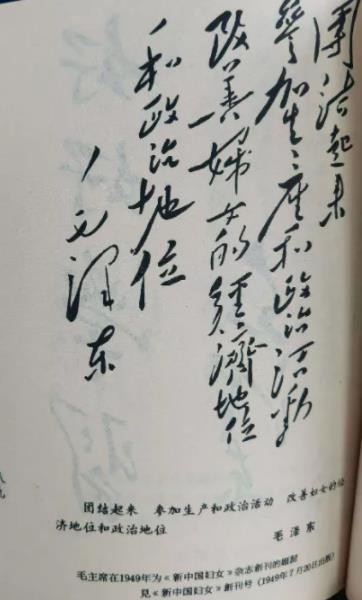 团结起来
参加生产和政治活动
改善妇女的经济地位
和政治地位
毛泽东
团结起来 参加生产和政治活动 改善妇女的经
济地位和政治地位
毛泽东
毛主席在1949年为《新中国妇女》杂志创刊的题词
见《新中国妇女》创刊号(1949年7月20日出版)